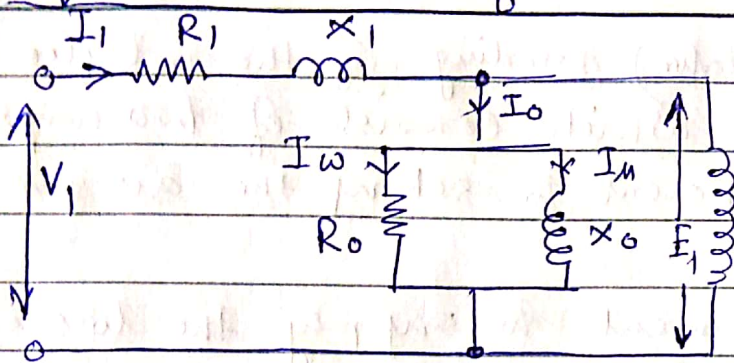 I₁ R₁ X₁
I₀
V₁ Iω Iμ
R₀ X₀ E₁